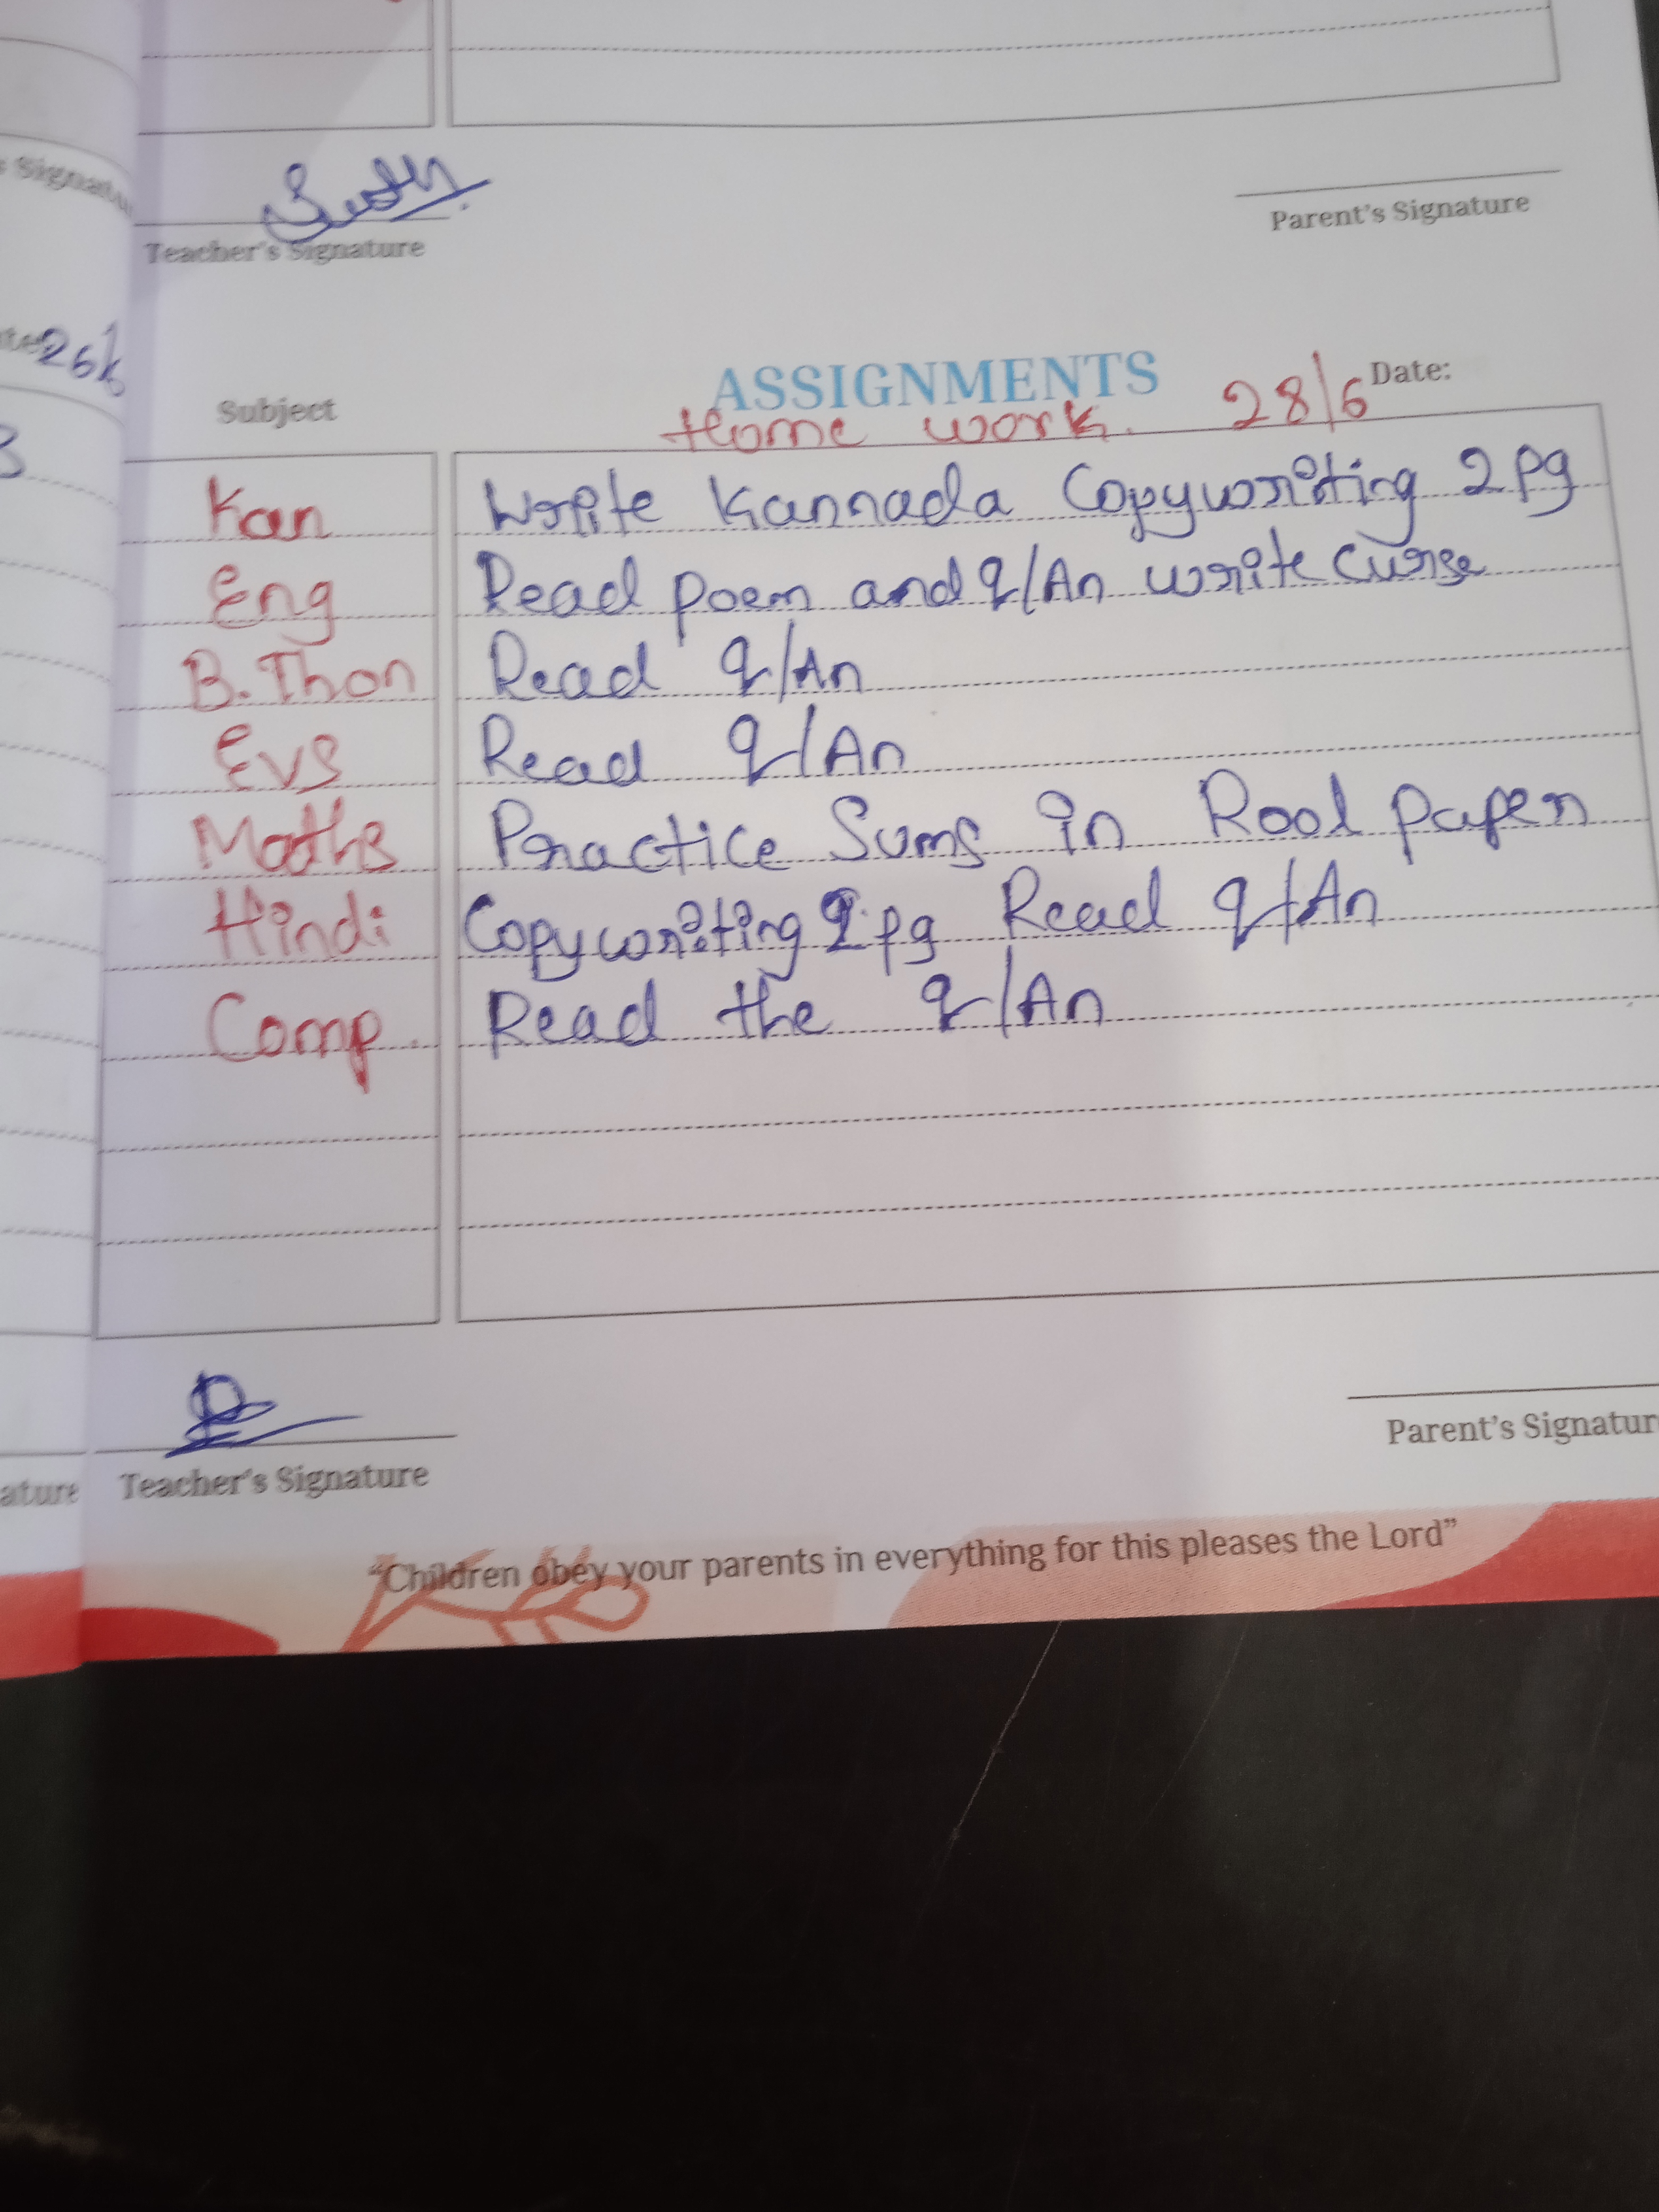 Signatu
Teacher's Signature
Parent's Signature
26/6
ASSIGNMENTS
Subject
Date:
Home work. 28/6
Kan Write Kannada Copywriting 2 pg
Eng Read poem and q/An write curse
B.Thon Read q/An
Evs Read q/An
Maths Practice Sums in Rool paper
Hindi Copywriting 2 pg Read q/An
Comp. Read the q/An
ature
Teacher's Signature
Parent's Signatur
"Children obey your parents in everything for this pleases the Lord"